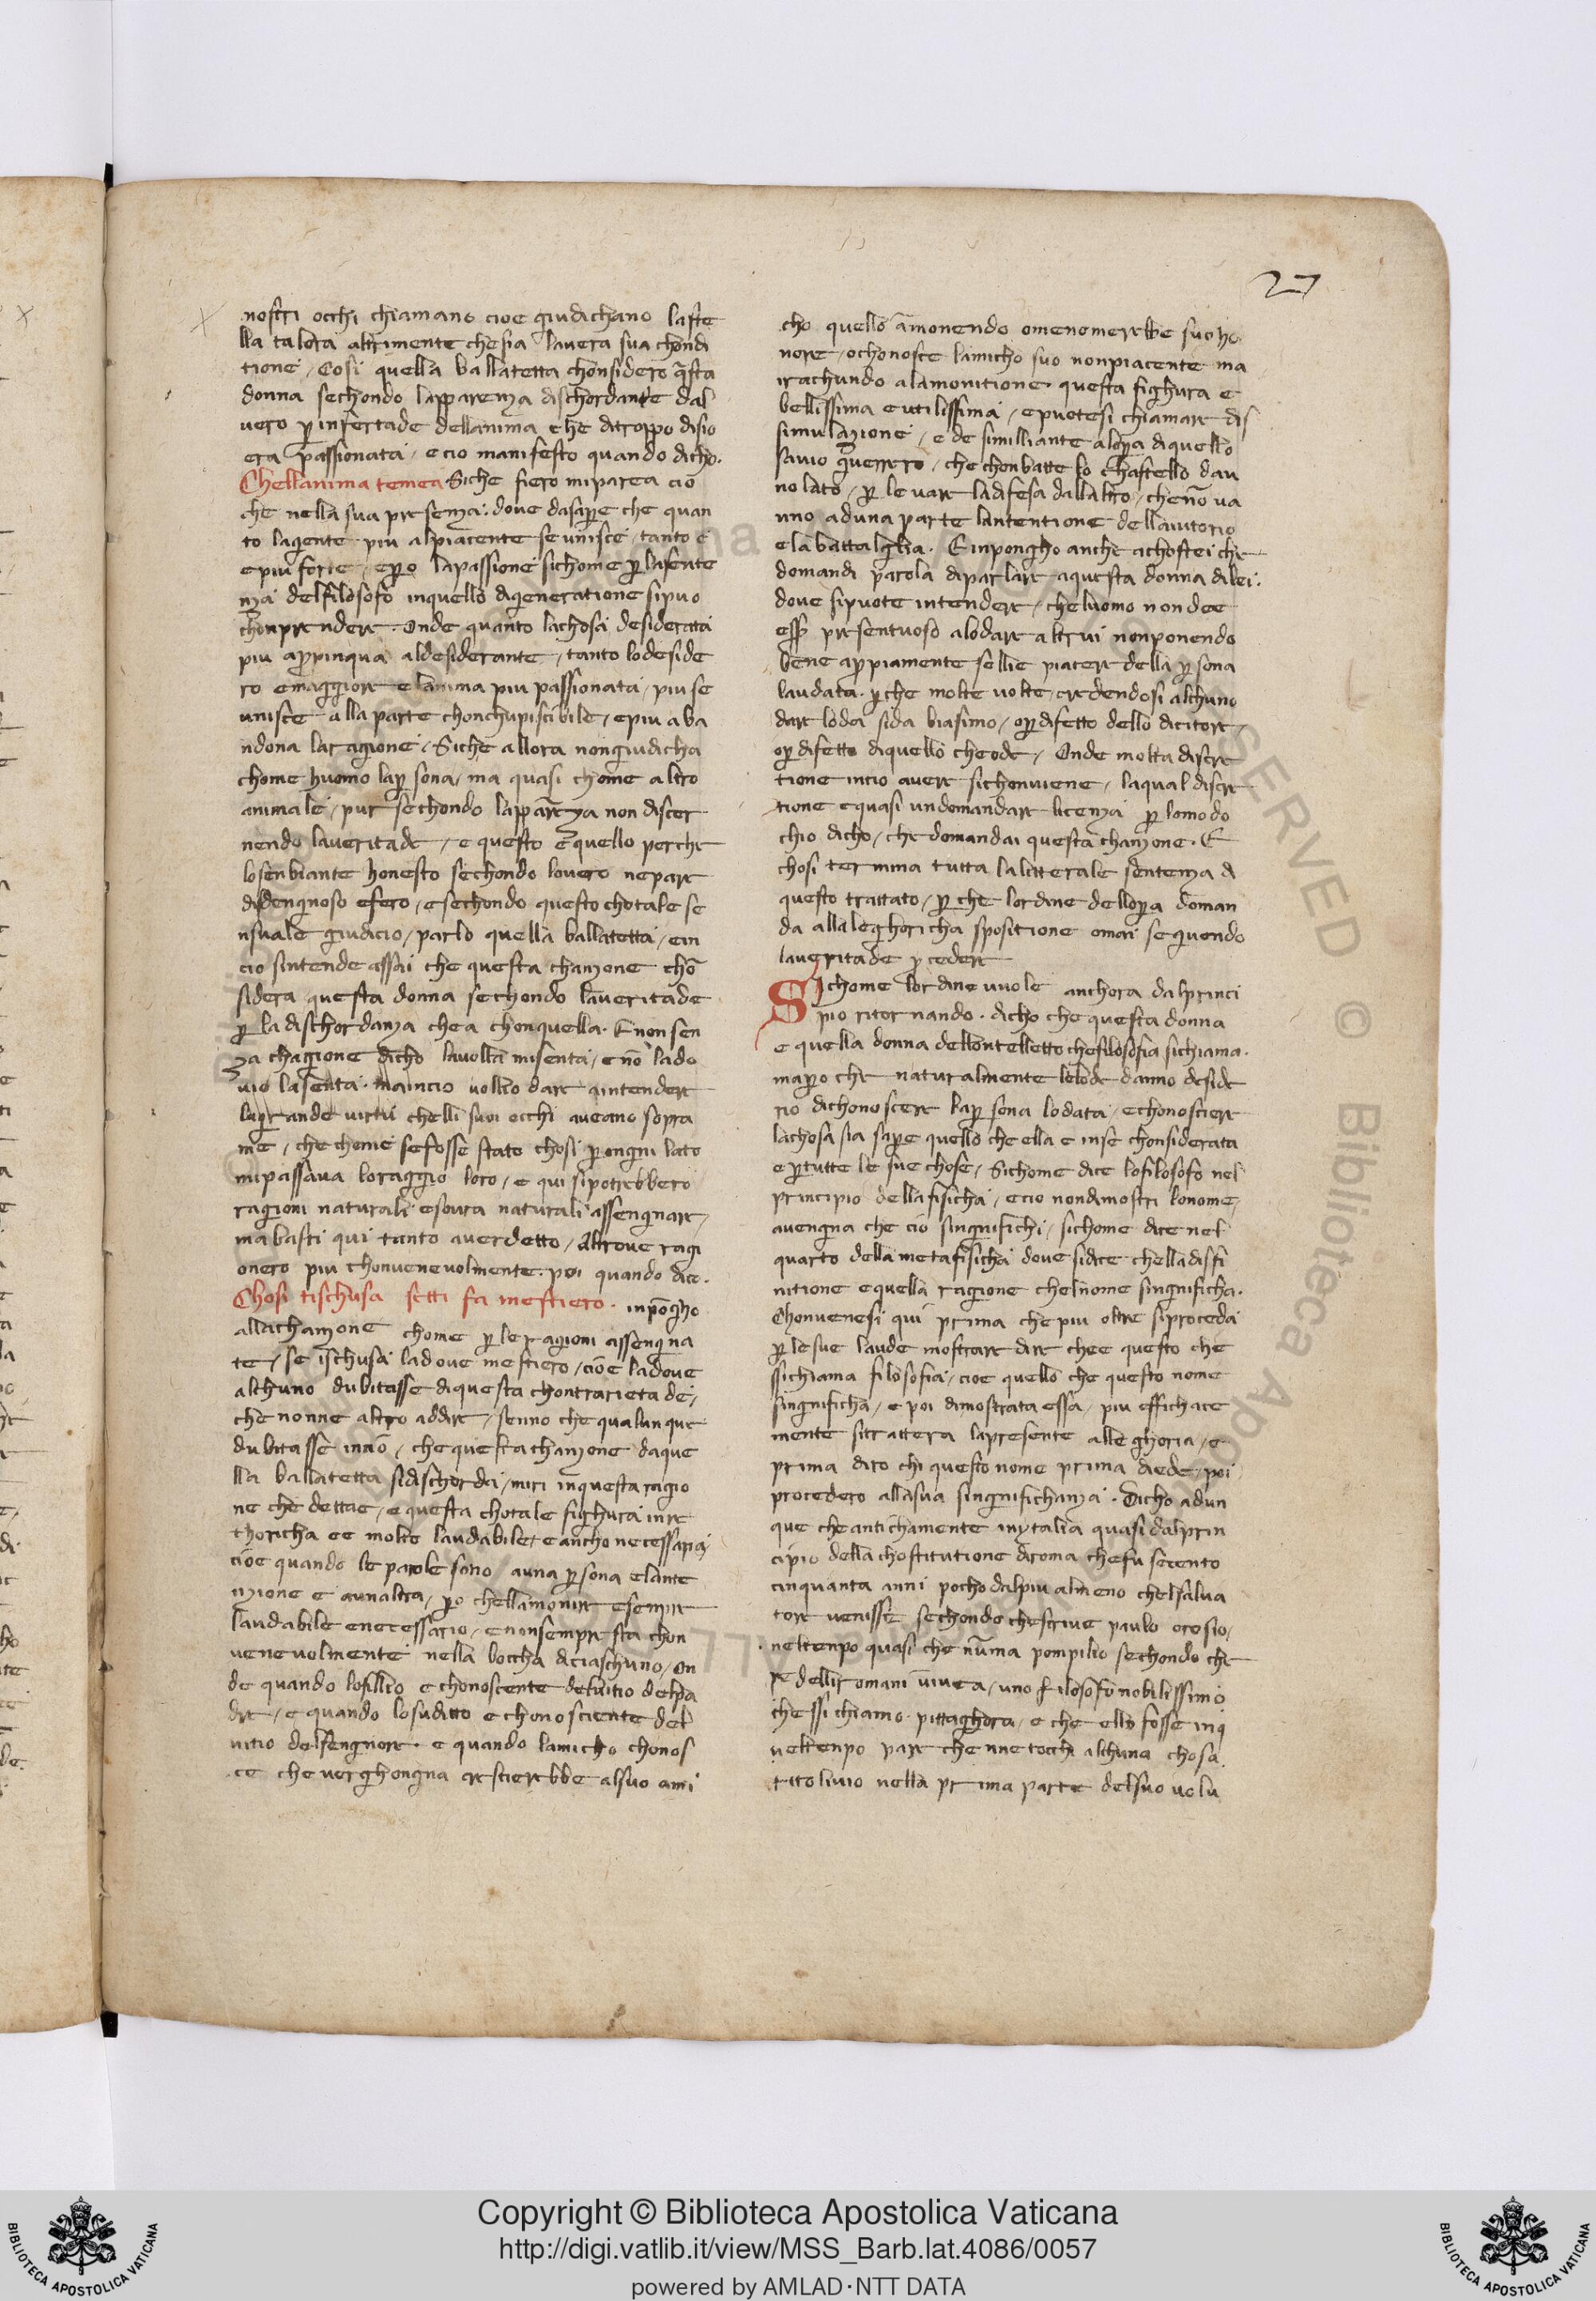 27
nostri occhi chiamano cioe giudichano laste
lla talora altrimente che sia lavera sua chondi
tione / Cosi quella ballatetta chonsidero q̄sta
donna sechondo lapparenza dischordante dal
vero ꝑ infertade dellanima che ditroppo disio
era passionata / ecio manifesto quando dicho.
Chellanima temea Siche fiero miparea cio
che nella sua presenza: dove dasaꝑe che quan
to lagente piu alpiacente seunisce / tanto e
epiu forte / eꝑo lapassione sichome ꝑ lasente
nza delfilosofo inquello digeneratione sipuo
chonprendere. Onde quanto lachosa desiderata
piu aꝓpinqua aldesiderante / tanto lodeside
ro emaggiore e lanima piu passionata / piu se
unisce alla parte chonchupiscibile / epiu aba
ndona laragione / Siche allora nongiudicha
chome huomo laꝑsona / ma quasi chome altro
animale / pur sechondo lapparenza non discer
nendo laveritade / e questo e quello perche
losenbiante honesto sechondo lovero nepare
disdengnoso efero / esechondo questo chotale se
nsuale giudicio / parlo quella ballatetta / ein
cio sintende assai che questa chanzone chō
sidera questa donna sechondo laveritade
ꝑ la dischordanza che a chonquella. E non sen
za chagione dicho lavolla misenta / e nō lado
vio lasenta. maincio vollio dare aintendere
lagrande virtu chelli suoi occhi aveano sopra
me / che chome sefosse stato chosi ꝑ ongni lato
mipassava loraggio loro / e qui sipotrebbero
ragioni naturali esovra naturali assengnare /
ma basti qui tanto averdetto / Altrove ragi
onero piu chonvenevolmente. poi quando dice.
Chosi tischusa setti fa mestiero. inpōgho
allachanzone chome ꝑ le ragioni assengna
te / se ischusi ladove mestiero / cioe ladove
alchuno dubitasse diquesta chontrarieta de /
che nonne altro addire / senno che qualunque
dubitasse inciō / che questa chanzone daque
lla ballatetta sidischordei / miri inquesta ragio
ne che dettae / e questa chotale fighura inre
thoricha ee molto laudabile / e ancho necessaria /
cioe quando le parole sono auna ꝑsona elante
nzione e aunaltra / ꝑo chellamonire esenpre
laudabile enecessario / enonsempre sta chon
venevolmente nella boccha diciaschuno / On
de quando lofillio e chonoscente delvitio delpa
dre / e quando losudditto e chonosciente del
vitio delsengnore. e quando lamicho chonos
ce che verghongna crescierebbe alsuo ami
cho quello āmonendo omenomerebbe suo ho
nore / ochonosce lamicho suo nonpaciente ma
irachundo alamonitione. questa fighura e
bellissima eutilissima / epuotesi chiamare dis
simulazione / e de simigliante aloꝑa diquello
savio guerrero / che chonbatte lo chastello dau
no lato / ꝑ levare ladifesa dallaltro / chenō va
nno aduna parte lantentione dellaiutorio
ela battalglia. E inpongho anche achostei che
domandi parola diparlare aquesta donna dilei:
dove sipuote intendere / che luomo non dee
esse presentuoso alodare altrui nonponendo
bene aꝓpiamente sellie piacere della ꝑsona
laudata. ꝑche molte volte credendosi alchuno
dar loda sida biasimo / oꝑ difetto dello dicitore /
oꝑ difetto diquello cheode / Onde molta discre
tione incio avere sichonviene / laqual discre
tione equasi undomandare licenza ꝑ lomodo
chio dicho / che domandai questa chanzone. E
chosi termina tutta lalitterale sentenza di
questo trattato / ꝑ che lordine delloꝑa doman
da allaleghoricha spositione omai sequendo
laveritade ꝓcedere
Sichome lordine vuole anchora dalprinci
pio ritornando. dicho che questa donna
e quella donna dellontelletto che filosofia sichiama.
maꝑo che naturalmente lelode danno deside
rio dichonoscere laꝑsona lodata / echonosciere
lachosa sia saꝑe quello che ella e inse chonsiderata
e ꝑ tutte le sue chose / Sichome dice lofilosofo nel
principio dellafisicha / ecio nondimostri lonome /
avengna che cio singnifichi / sichome dice nel
quarto della metafisicha dove sidice chelladisfi
nitione equella ragione chelnome singnificha.
Chonvenesi qui prima che piu oltre siproceda
ꝑ lesue laude mostrare dire chee questo che
ssichiama filosofia / cioe quello che questo nome
singnificha / e poi dimostrata essa / piu effichace
mente sitrattera lapresente alleghoria / e
prima diro chi questo nome prima diede / poi
procedero allasua singnifichanza. Dicho adun
que che antichamente inytalia quasi dalprin
cipio della chostitutione diroma chefu secento
cinquanta anni pocho dalpiu almeno chelsalva
tore venisse sechondo chescrive paulo orosio /
neltenpo quasi che nūma pompilio sechondo che
re delliromani vivea / uno filosofo nobilissimo
chessi chiamo. pittaghora / e che ello fosse inq
ueltenpo pare che nne tocchi alchuna chosa
titolivio nella prima parte delsuo volu
Copyright © Biblioteca Apostolica Vaticana
http://digi.vatlib.it/view/MSS_Barb.lat.4086/0057
powered by AMLAD·NTT DATA
BIBLIOTECA APOSTOLICA VATICANA
BIBLIOTECA APOSTOLICA VATICANA